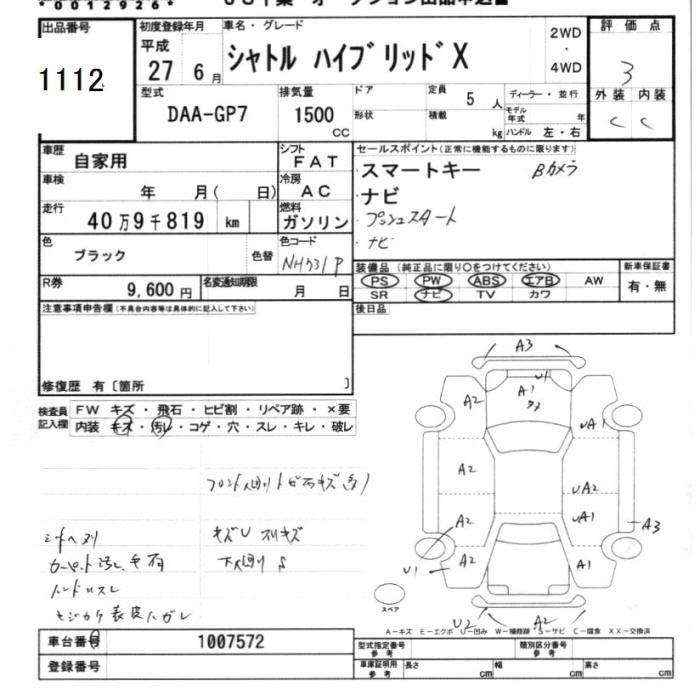 *00012926*
出品番号
1112
初度登録年月
平成
27 6月
車名・グレード
シャトル ハイブリッドX
2WD
・
4WD
評価点
3
型式
DAA-GP7
排気量
1500
CC
ドア
形状
定員 5人
積載 kg
ディーラー・並行
モデル年式 年
ハンドル 左・右
外装 内装
C C
車歴
自家用
シフト
FAT
車検
年 月( 日)
冷房
AC
走行
40万9千819 km
燃料
ガソリン
色
ブラック
色替
色コード
NH731P
R券
9,600円
名変通知期限
月 日
セールスポイント(正常に機能するものに限ります)
スマートキー Bカメラ
ナビ
プッシュスタート
ナビ
装備品(純正品に限り○をつけてください)
PS PW ABS エアB AW
SR ナビ TV カワ
新車保証書
有・無
後日品
注意事項申告欄(不具合内容等は具体的に記入して下さい)
修復歴 有〔箇所 〕
検査員記入欄
FW キズ・飛石・ヒビ割・リペア跡・×要
内装 キズ・汚レ・コゲ・穴・スレ・キレ・破レ
A3
U1
A2
A1
UA1
A2
UA2
A2
UA1
A3
A2
A1
U1
U2
A2
スペア
キズU スリキズ
下回りS
A-キズ E-エクボ U-凹み W-補修跡 S-サビ C-腐食 XX-交換済
車台番号
1007572
登録番号
型式指定番号
参考
類別区分番号
参考
車庫証明用
参考
長さ cm
幅 cm
高さ cm